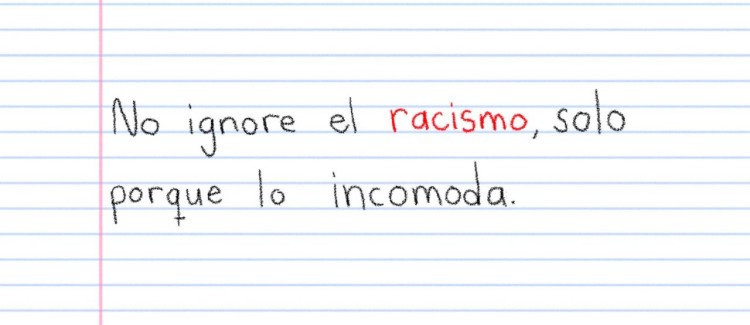 No ignore el racismo, solo
porque lo incomoda.